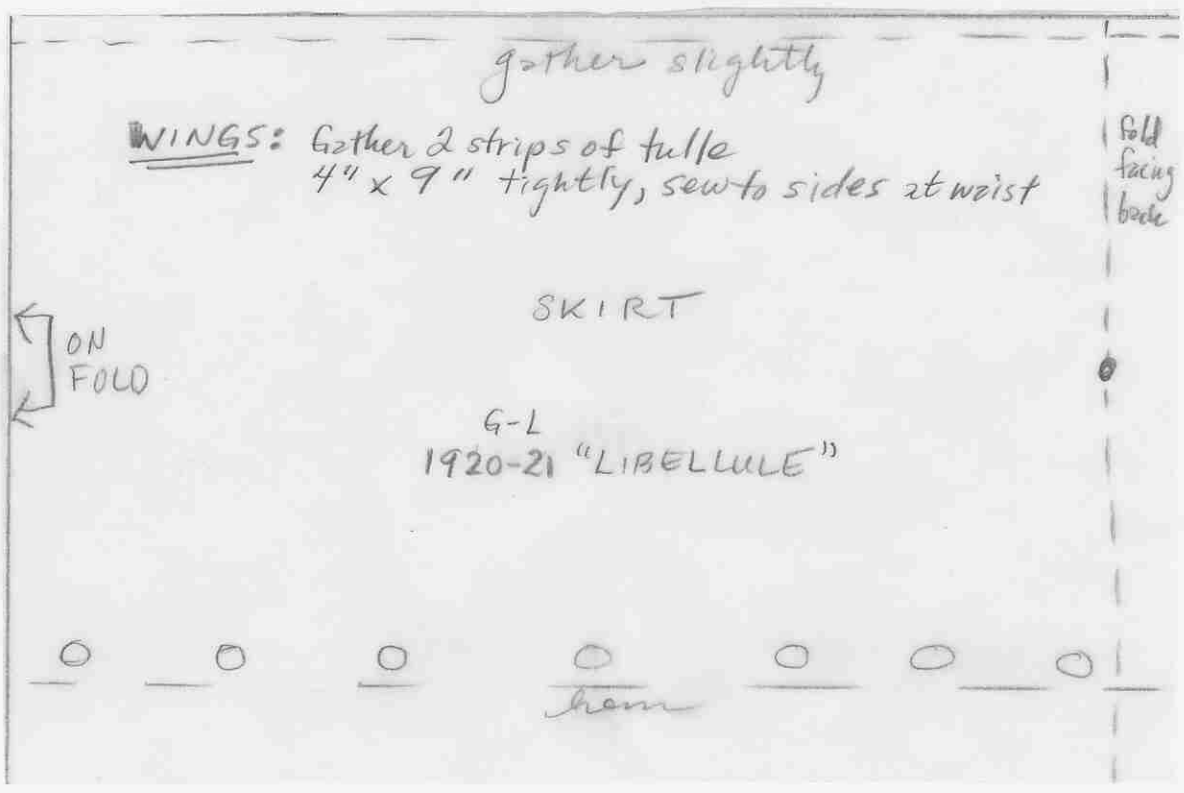 gather slightly
WINGS: Gather 2 strips of tulle
4" x 9" tightly, sew to sides at waist
fold
facing
back
SKIRT
ON
FOLD
G-L
1920-21 "LIBELLULE"
hem